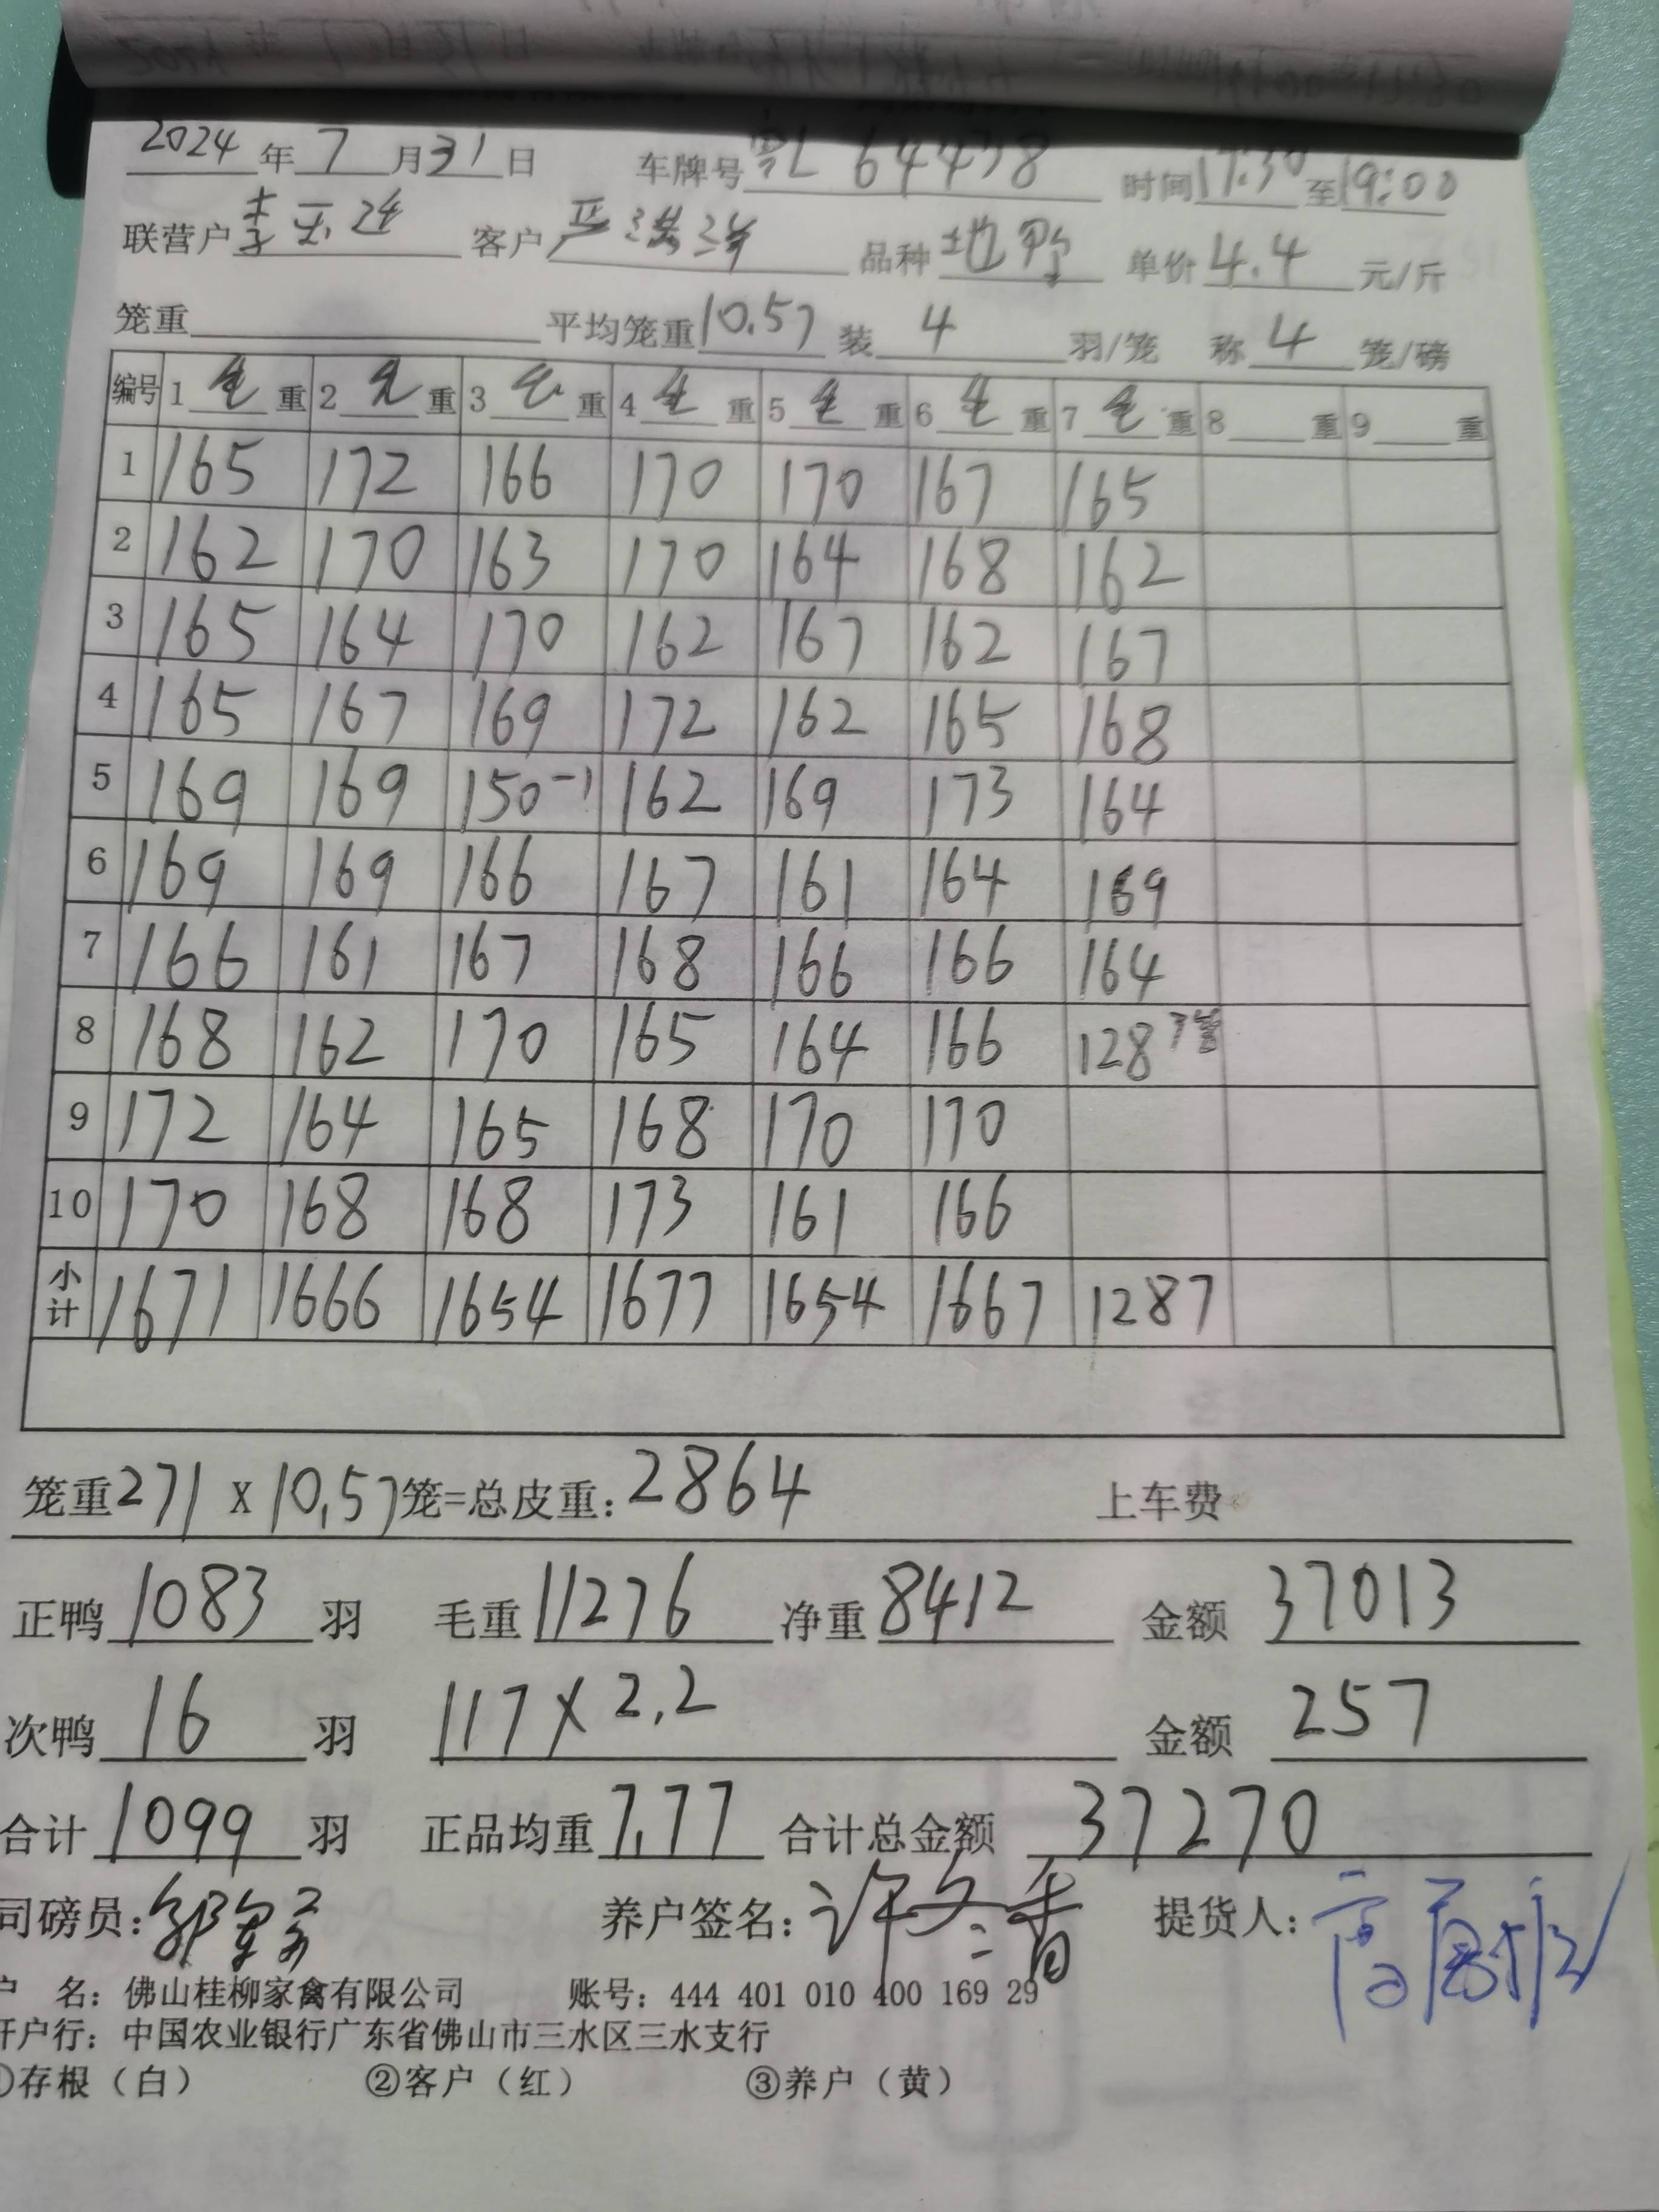 2024 年 7 月 31 日 车牌号 粤L 64438 时间 17:30 至 19:00
联营户 李玉连 客户 严洪洋 品种 地鸭 单价 4.4 元/斤
笼重 平均笼重 10.57 装 4 羽/笼 称 4 笼/磅
编号 1 毛 重 2 毛 重 3 毛 重 4 毛 重 5 毛 重 6 毛 重 7 毛 重 8 重 9 重
1 165 172 166 170 170 167 165
2 162 170 163 170 164 168 162
3 165 164 170 162 167 162 167
4 165 167 169 172 162 165 168
5 169 169 150-1 162 169 173 164
6 169 169 166 167 161 164 169
7 166 161 167 168 166 166 164
8 168 162 170 165 164 166 128 3笼
9 172 164 165 168 170 170
10 170 168 168 173 161 166
小计 1671 1666 1654 1677 1654 1667 1287
笼重 271 X 10.57 笼=总皮重: 2864 上车费
正鸭 1083 羽 毛重 11276 净重 8412 金额 37013
次鸭 16 羽 117 x 2.2 金额 257
合计 1099 羽 正品均重 7.77 合计总金额 37270
司磅员: 养户签名: 许冬香 提货人:
户 名: 佛山桂柳家禽有限公司 账号: 444 401 010 400 169 29
开户行: 中国农业银行广东省佛山市三水区三水支行
①存根（白） ②客户（红） ③养户（黄）